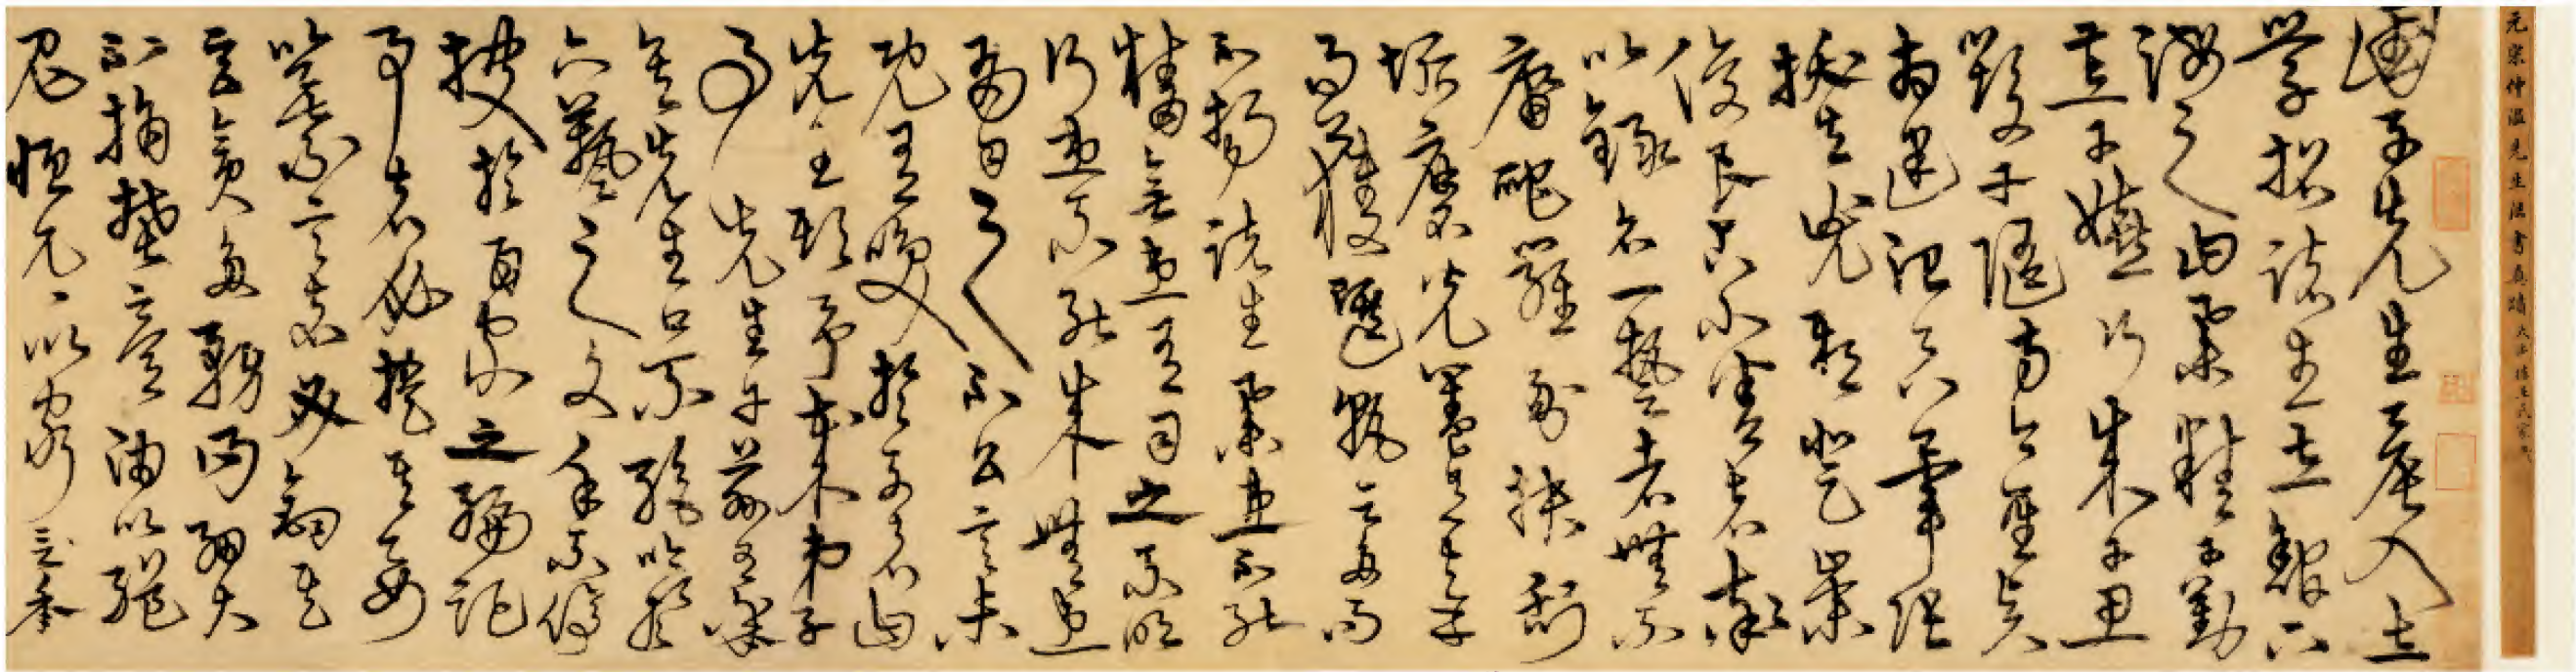 元宋仲温先生法書真蹟
國子先生晨入太
學招諸生立館下
誨之曰業精于勤
荒于嬉行成于思
毀于隨方今聖賢
相逢治具畢張
拔去兇邪登崇
俊良占小善者率
以錄名一藝者無不
庸爬羅剔抉刮
垢磨光蓋有幸
而獲選孰云多而
不揚諸生業患不能
精無患有司之不明
行患不能成無患
有司之不公言未
既有笑於列者曰
先生欺予哉弟子
事先生于茲有年
矣先生口不絕吟於
六藝之文手不停
披於百家之編記
事者必提其要
纂言者必鉤其
玄貪多務得細大
不捐焚膏油以繼
晷恆兀兀以窮年